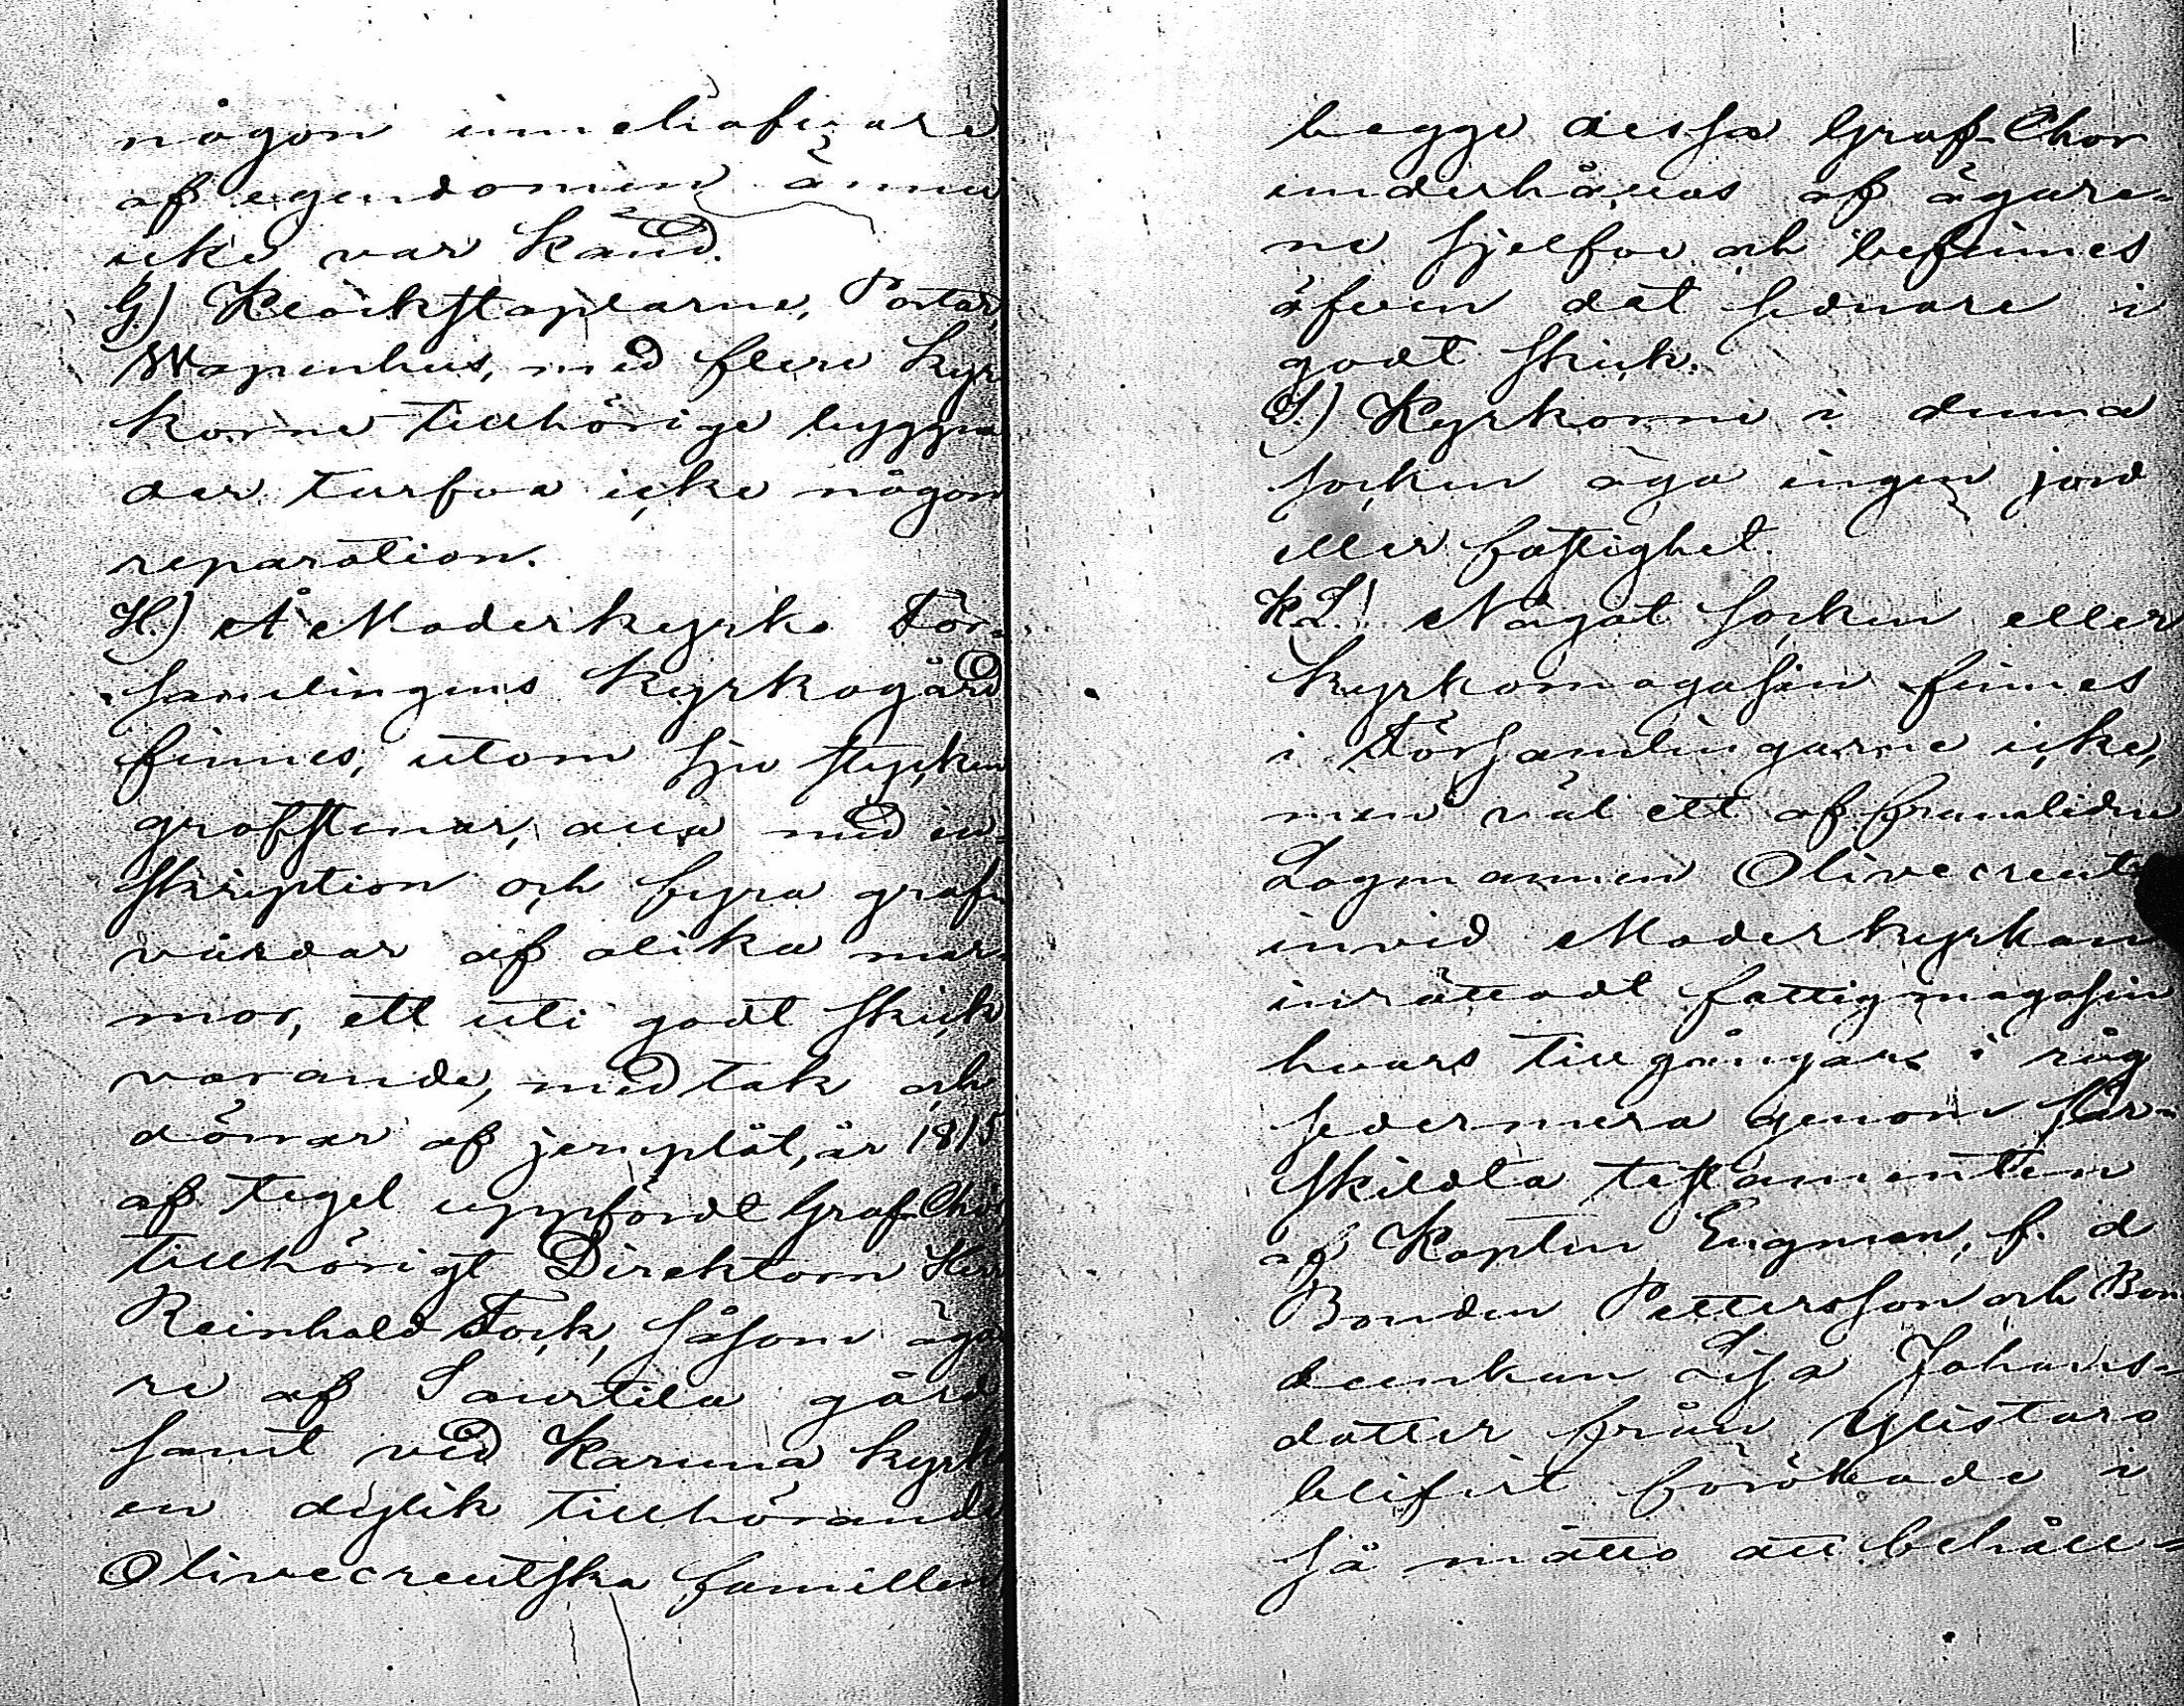 någon innehafvare
af egendomen ännu
icke var känd.
G.) Klåckstaplarne, Portar,
Wapenhus, med flere kyr
korne tillhörige byggna
der turfva icke någon
reparation.
H.) Å Moderkyrko För-
samlingens kyrkogård
finnes, utom sju stycken
grafstenar, alla med in-
skription och fyra graf-
vårdar af olika mar-
mor, ett uti godt skick
varande, med tak och
dörrar af jernplåt, år 1815
af tegel uppfördt Graf-Chor,
tillhörigt Direktorn Herr
Reinhold Fock, såsom äga
re af Sauvtila gård,
samt vid Karuna kyrka
en dylik tillhörande
Olivecreutska familien
begge dessa Graf-Chor
underhållas af ägare-
ne sjelfva och befinnes
äfven det sednare i
godt skick.
I.) Kyrkorne i denna
socken äga ingen jord
eller fastighet.
K.L.) Något socken eller
kyrkomagasin finnes
i Församlingarne icke,
men väl ett af framlidne
Lagmannen Olivecreutz
invid Moderkyrkan
inrättadt fattigmagasin
hvars tillgångar i råg
sedermera genom sär-
skildta testamenten
af Kaplin Engman, f. d
Bonden Pettersson och Bon
deenkan Lisa Johans-
dotter från Ylistaro
blifvit förökade i
så måtto att behåll-